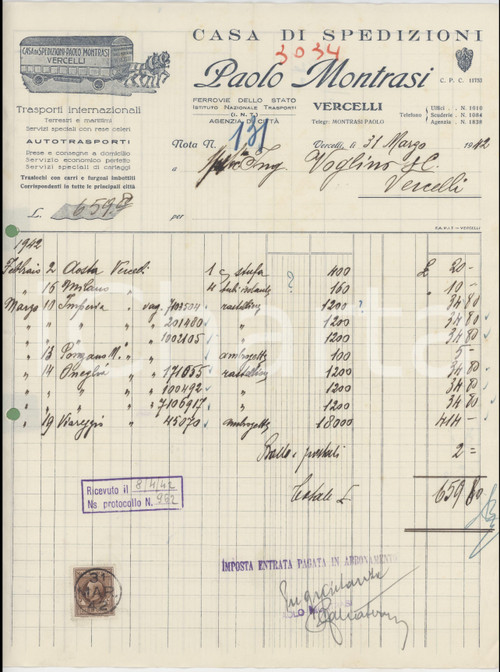 CASA DI SPEDIZIONI PAOLO MONTRASI
VERCELLI
CASA DI SPEDIZIONI
3034
Paolo Montrasi
C. P. C. 11753
Trasporti internazionali
Terrestri e marittimi
Servizi speciali con resa celeri
AUTOTRASPORTI
Presa e consegna a domicilio
Servizio economico perfetto
Servizi speciali di carriaggi
Traslochi con carri e furgoni imbottiti
Corrispondenti in tutte le principali città
FERROVIE DELLO STATO
ISTITUTO NAZIONALE TRASPORTI
(I. N. T.)
AGENZIA DI CITTÀ
VERCELLI
Telegr: MONTRASI PAOLO
Telefono
Uffici . N. 1016
Scuderie . N. 1084
Agenzia . N. 1839
Nota N. 131
Vercelli, il 31 Marzo 1942
Ing Voglino & C.
Vercelli
L. 659,8
per
1942
Febbraio 2 Aosta Vercelli 1 c stufa 400 £ 20-
" 16 Milano 4 160 10-
Marzo 10 Imperia vag. 7103504 ? 1200 ? 34 80
" " " 201480 " 1200 34 80
" " " 1002105 " 1200 34 80
" 13 Ponzano M. 100 5-
" 14 Oneglia " 171055 1200 34 80
" " " 100492 " 1200 34 80
" " " 7106917 " 1200 34 80
" 19 Viareggio " 45070 18000 414-
Bollo e postali 2=
Totale £ 659 80
Ricevuto il 8/4/42
Ns protocollo N. 982
IMPOSTA ENTRATA PAGATA IN ABBONAMENTO
31
MAR.
42